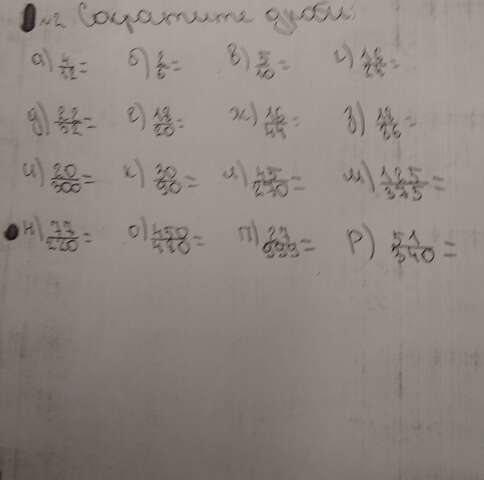 №2 Сократите дроби:
а) 4/32= б) 2/6= в) 5/10= г) 16/24=
д) 22/32= е) 18/20= ж) 16/44= з) 13/26=
и) 20/300= к) 30/90= л) 45/270= м) 125/375=
н) 77/220= о) 450/480= п) 27/999= р) 51/340=